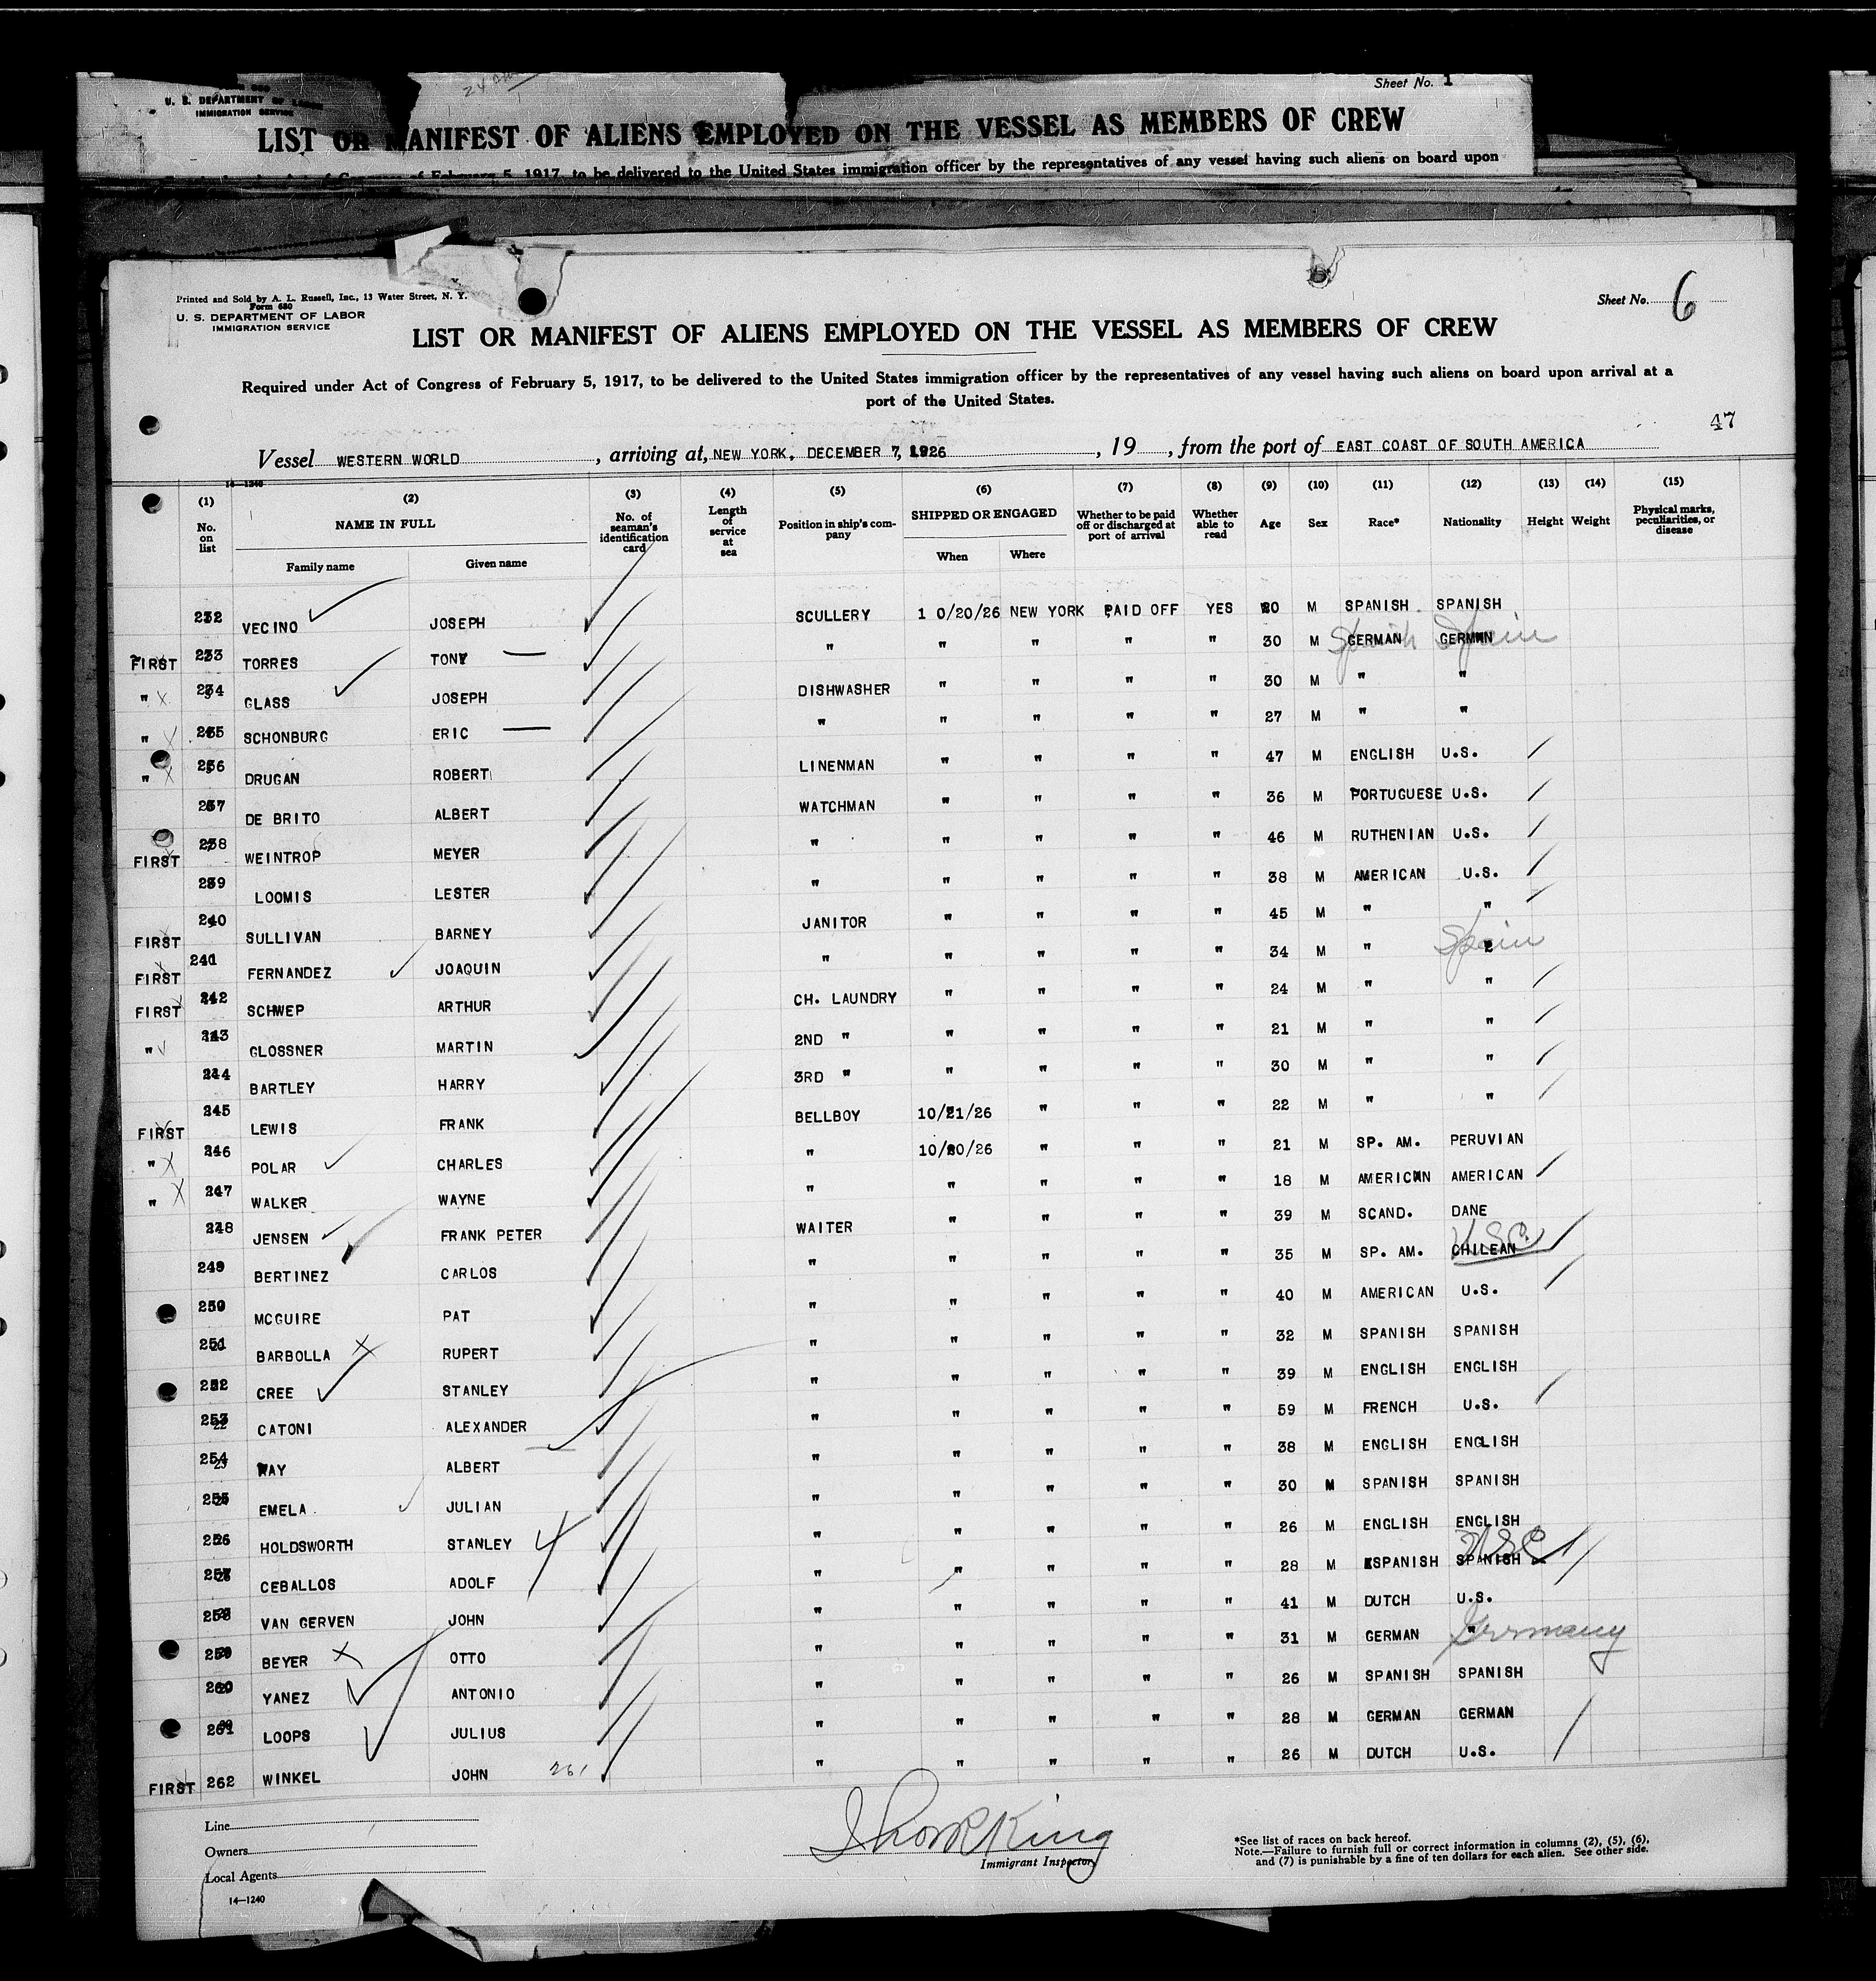 24
Sheet No. 1
U. S. DEPARTMENT OF LABOR
IMMIGRATION SERVICE
LIST OR MANIFEST OF ALIENS EMPLOYED ON THE VESSEL AS MEMBERS OF CREW
Act of Congress of February 5, 1917, to be delivered to the United States immigration officer by the representatives of any vessel having such aliens on board upon
Printed and Sold by A. L. Russell, Inc., 13 Water Street, N. Y.
Form 680
U. S. DEPARTMENT OF LABOR
IMMIGRATION SERVICE
Sheet No. 6
LIST OR MANIFEST OF ALIENS EMPLOYED ON THE VESSEL AS MEMBERS OF CREW
Required under Act of Congress of February 5, 1917, to be delivered to the United States immigration officer by the representatives of any vessel having such aliens on board upon arrival at a
port of the United States.
47
Vessel WESTERN WORLD, arriving at, NEW YORK, DECEMBER 7, 1926, 19 , from the port of EAST COAST OF SOUTH AMERICA
14-1240
(1) (2) (3) (4) (5) (6) (7) (8) (9) (10) (11) (12) (13) (14) (15)
No. on list NAME IN FULL No. of seaman's identification card Length of service at sea Position in ship's company SHIPPED OR ENGAGED Whether to be paid off or discharged at port of arrival Whether able to read Age Sex Race* Nationality Height Weight Physical marks, peculiarities, or disease
Family name Given name When Where
232 VECINO JOSEPH SCULLERY 1 0/20/26 NEW YORK PAID OFF YES 20 M SPANISH SPANISH
FIRST 233 TORRES TONY " " " " " 30 M GERMAN GERMAN Spanish Spain
" 234 GLASS JOSEPH DISHWASHER " " " " 30 M " "
" 235 SCHONBURG ERIC " " " " " 27 M " "
" 236 DRUGAN ROBERT LINENMAN " " " " 47 M ENGLISH U.S.
237 DE BRITO ALBERT WATCHMAN " " " " 36 M PORTUGUESE U.S.
FIRST 238 WEINTROP MEYER " " " " " 46 M RUTHENIAN U.S.
239 LOOMIS LESTER " " " " " 38 M AMERICAN U.S.
FIRST 240 SULLIVAN BARNEY JANITOR " " " " 45 M " "
FIRST 241 FERNANDEZ JOAQUIN " " " " " 34 M " Spain
FIRST 242 SCHWEP ARTHUR CH. LAUNDRY " " " " 24 M " "
" 243 GLOSSNER MARTIN 2ND " " " " " 21 M " "
244 BARTLEY HARRY 3RD " " " " " 30 M " "
FIRST 245 LEWIS FRANK BELLBOY 10/21/26 " " " 22 M " "
" 246 POLAR CHARLES " 10/20/26 " " " 21 M SP. AM. PERUVIAN
" 247 WALKER WAYNE " " " " " 18 M AMERICAN AMERICAN
248 JENSEN FRANK PETER WAITER " " " " 39 M SCAND. DANE
249 BERTINEZ CARLOS " " " " " 35 M SP. AM. CHILEAN U.S.C.
250 MCGUIRE PAT " " " " " 40 M AMERICAN U.S.
251 BARBOLLA RUPERT " " " " " 32 M SPANISH SPANISH
252 CREE STANLEY " " " " " 39 M ENGLISH ENGLISH
253 CATONI ALEXANDER " " " " " 59 M FRENCH U.S.
254 WAY ALBERT " " " " " 38 M ENGLISH ENGLISH
255 EMELA JULIAN " " " " " 30 M SPANISH SPANISH
256 HOLDSWORTH STANLEY " " " " " 26 M ENGLISH ENGLISH
257 CEBALLOS ADOLF " " " " " 28 M SPANISH SPANISH USC
258 VAN GERVEN JOHN " " " " " 41 M DUTCH U.S.
259 BEYER OTTO " " " " " 31 M GERMAN " Germany
260 YANEZ ANTONIO " " " " " 26 M SPANISH SPANISH
261 LOOPS JULIUS " " " " " 28 M GERMAN GERMAN
FIRST 262 WINKEL JOHN 261 " " " " " 26 M DUTCH U.S.
Line
Owners
Local Agents
14—1240
King
Immigrant Inspector
*See list of races on back hereof.
Note.—Failure to furnish full or correct information in columns (2), (5), (6),
and (7) is punishable by a fine of ten dollars for each alien. See other side.